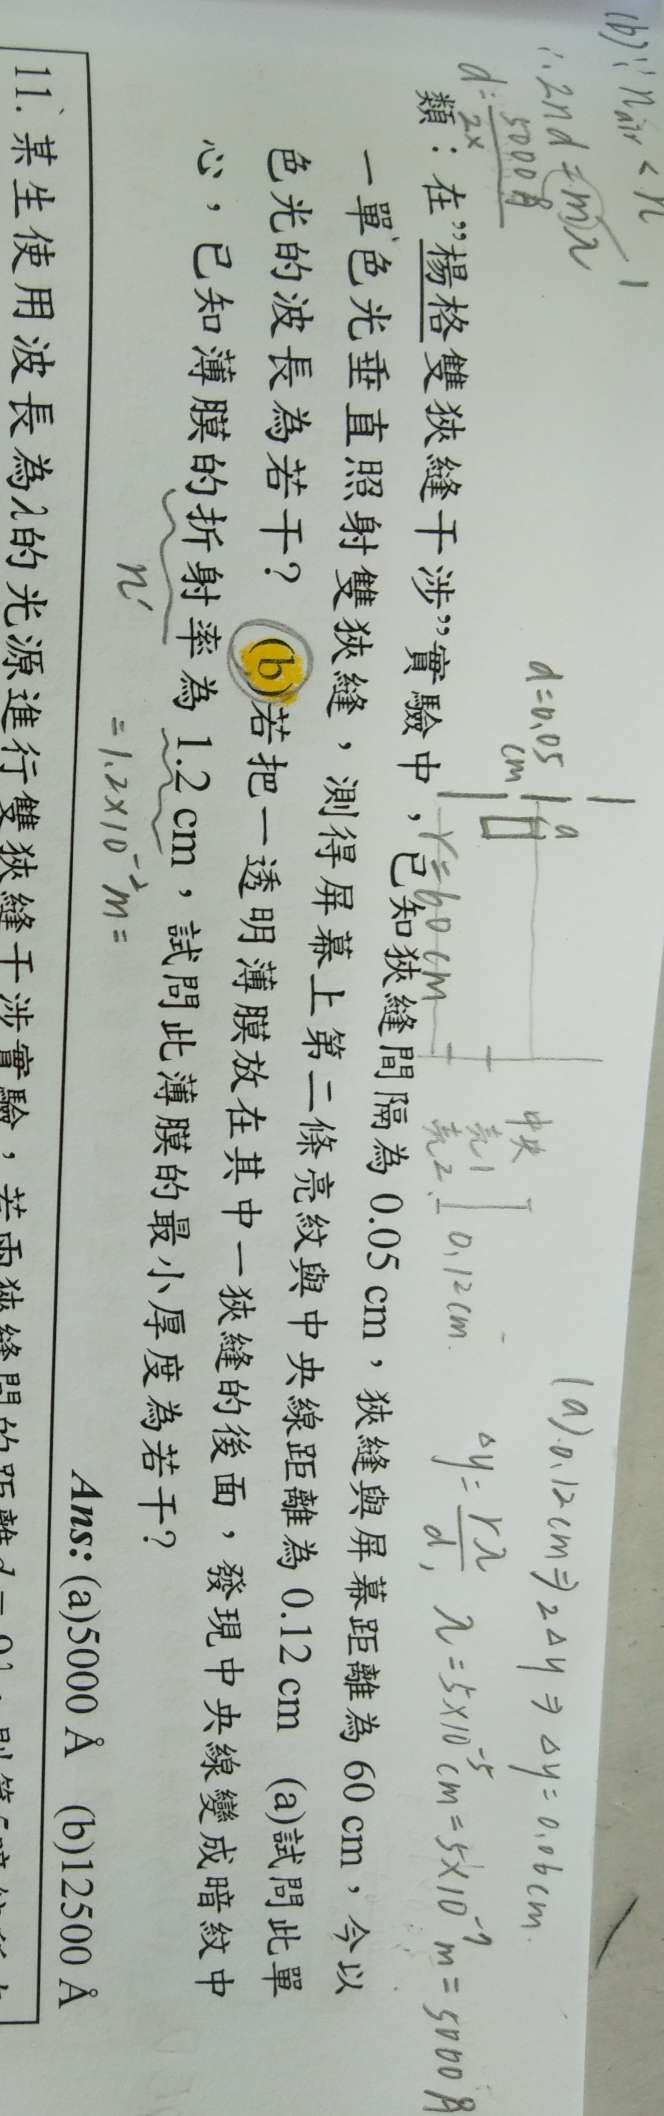 (b)∵ nair < n
∴ 2nd = mλ
1
d = 5000Å
2×
(a).0.12cm ⇒ 2△y ⇒ △y = 0.06cm.
△y = rλ
d, λ = 5×10⁻⁵cm = 5×10⁻⁷m = 5000Å
d=0.05
cm
a
r=60cm
中央
亮1
亮2
0.12cm.
類：在”楊格雙狹縫干涉”實驗中，已知狹縫間隔為 0.05 cm，狹縫與屏幕距離為 60 cm，今以
一單色光垂直照射雙狹縫，測得屏幕上第二條亮紋與中央線距離為 0.12 cm (a)試問此單
色光的波長為若干？ (b)若把一透明薄膜放在其中一狹縫的後面，發現中央線變成暗紋中
心，已知薄膜的折射率為 1.2 cm，試問此薄膜的最小厚度為若干？
n'
=1.2×10⁻²m=
Ans: (a)5000 Å (b)12500 Å
11. 某生使用波長為λ的光源進行雙狹縫干涉實驗，若兩狹縫間的距離 d =